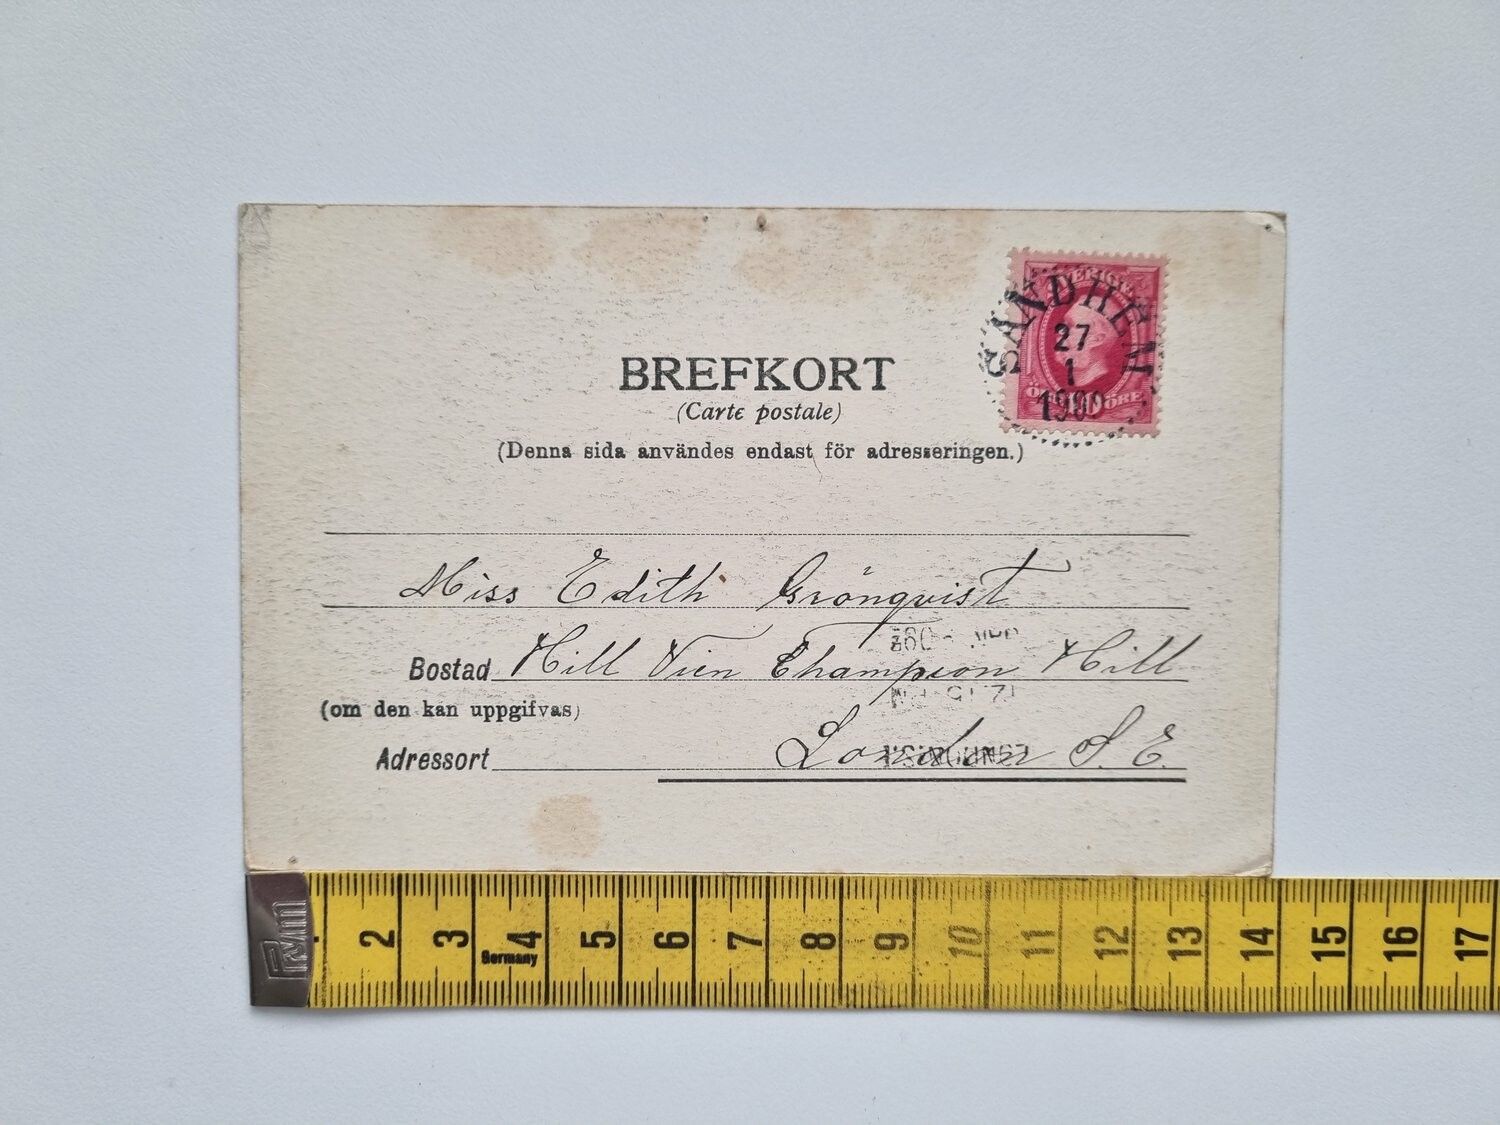 BREFKORT
(Carte postale)
(Denna sida användes endast för adresseringen.)
SVERIGE
SANDHEM
27
1
ÖRE ÖRE
Miss Edith Grönqvist
Bostad Hill Vien Champion Hill
(om den kan uppgifvas)
Adressort London S. E.
Prym
2 3 4 5 6 7 8 9 10 11 12 13 14 15 16 17
Germany